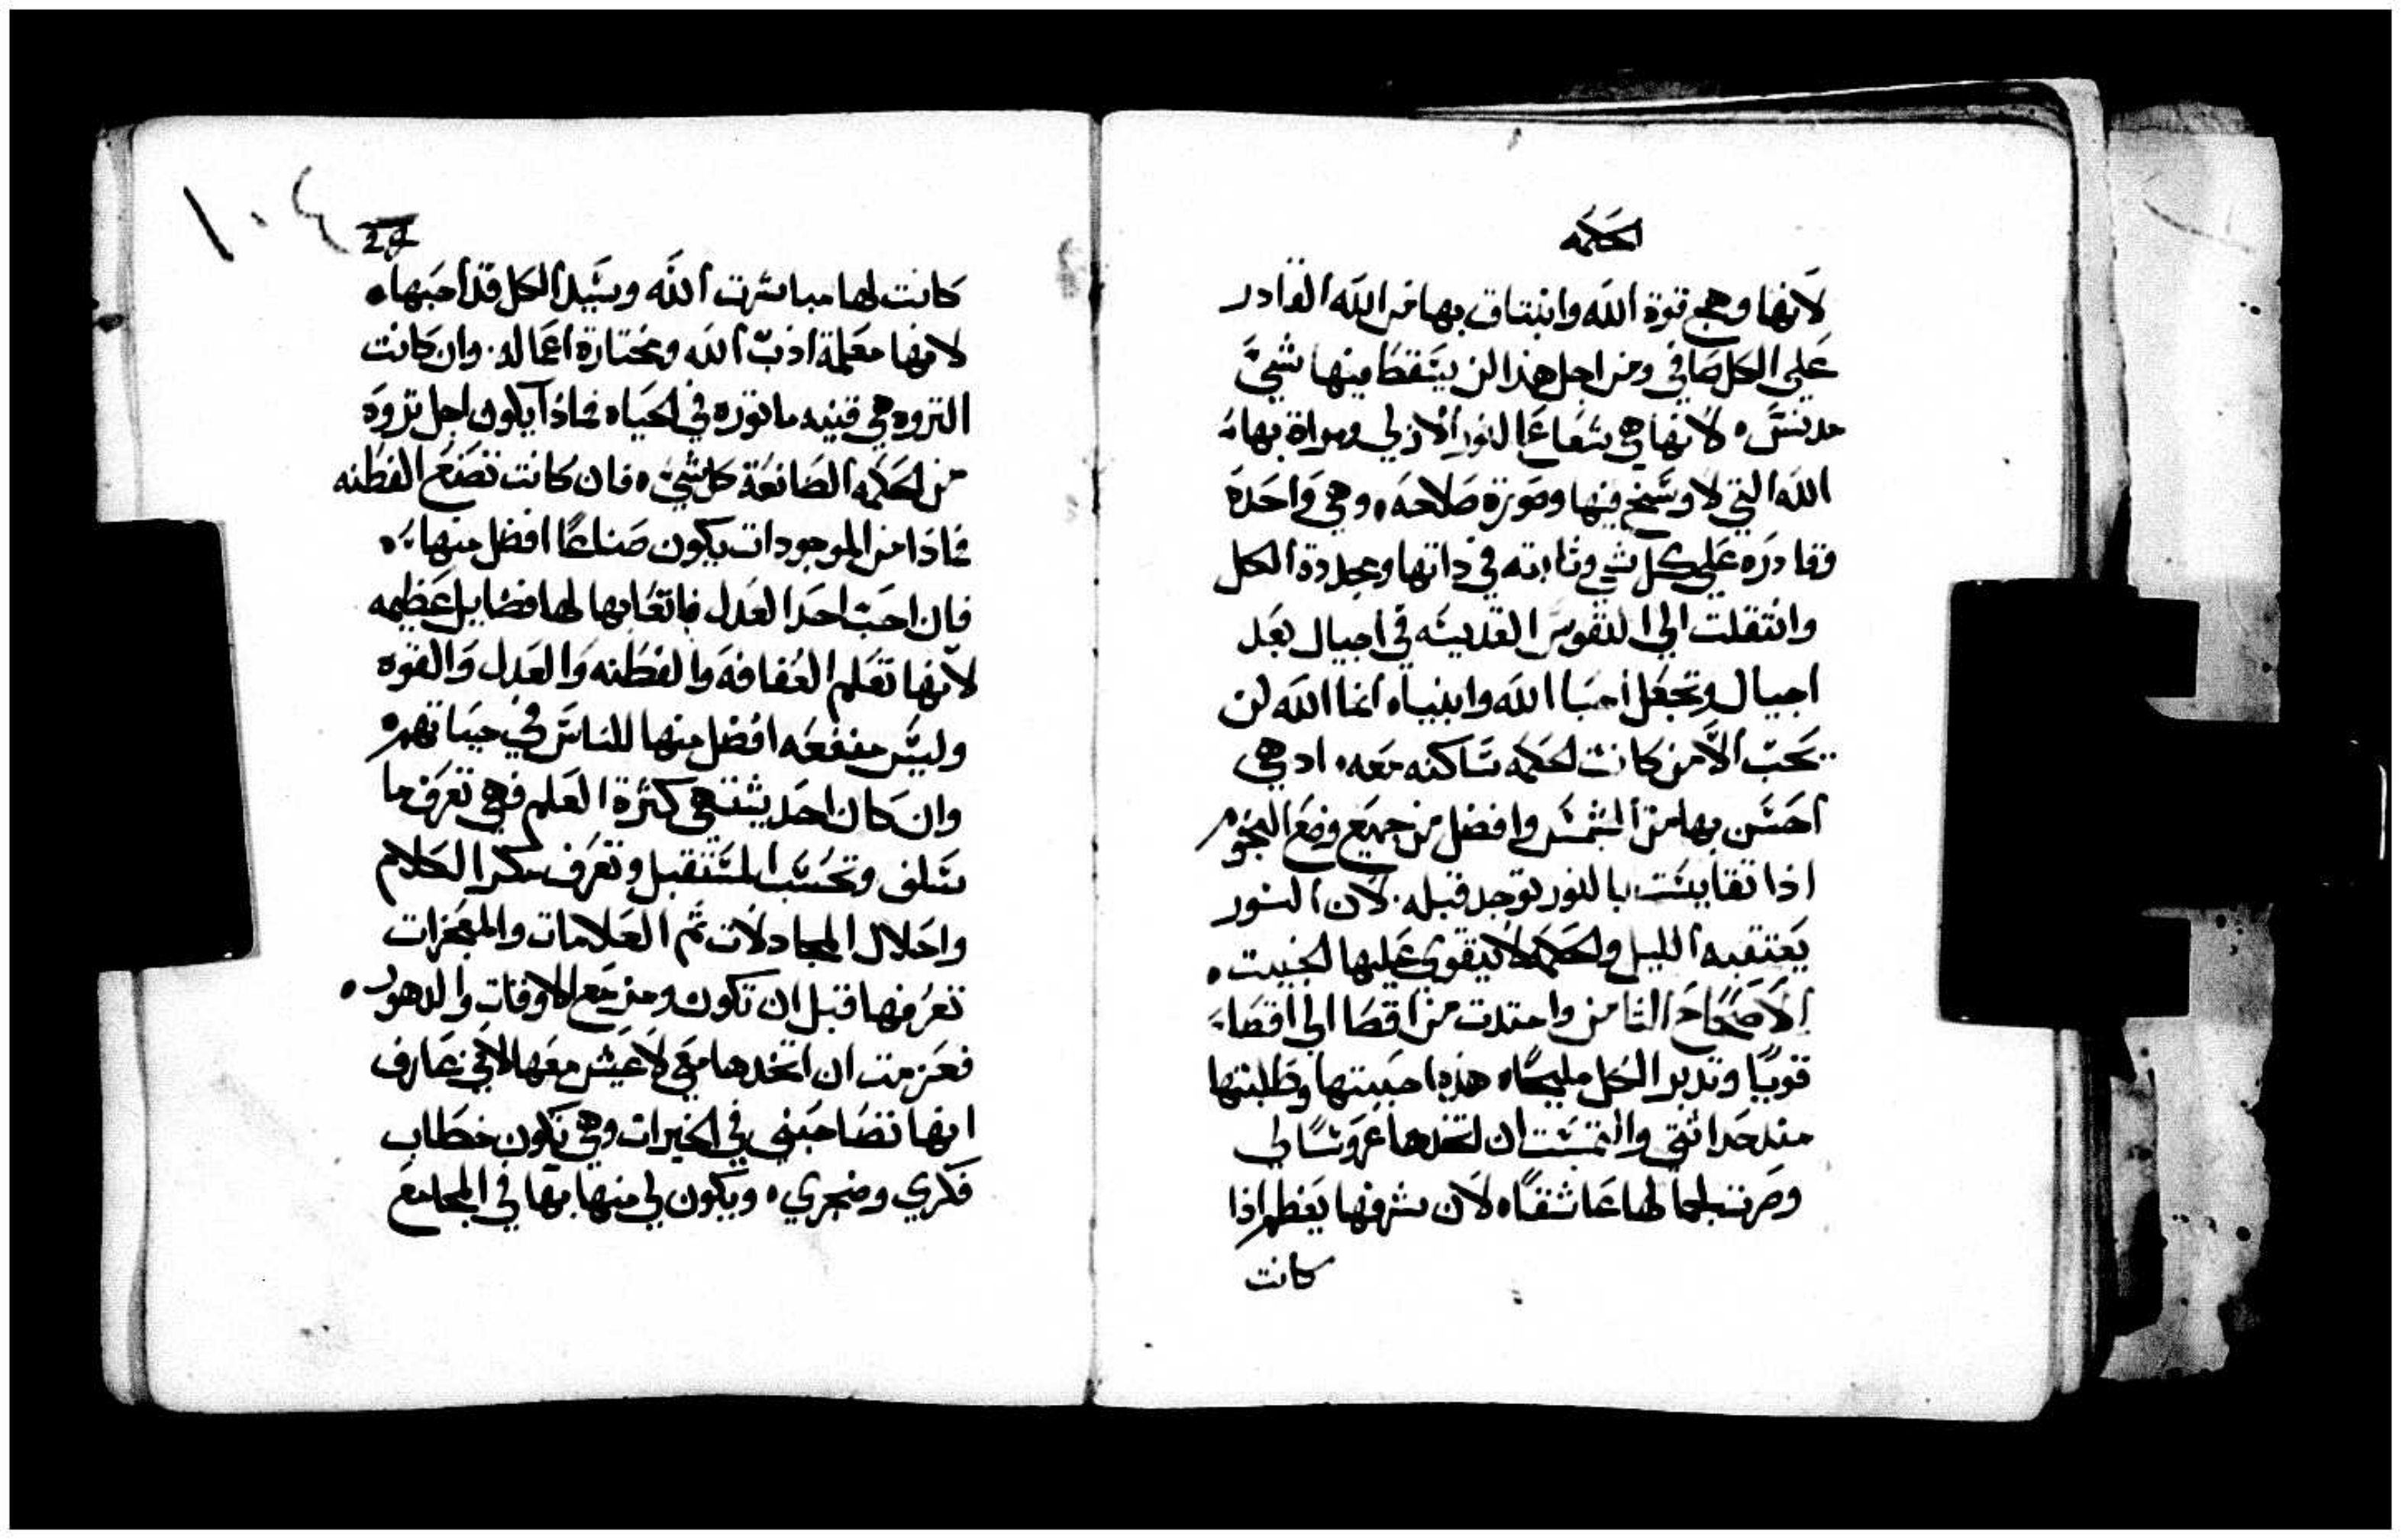 الحكمه
لانها وهج قوة الله وانبتاق بها من الله القادر
علي الكل صافي ومن اجل هذا لن يسقط فيها شي
مدنس. لانها هي شعاع النور الازلي ومراة بهاء
الله التي لا وسخ فيها وصورة صلاحه. وهي واحدة
وقادره علي كل شي وثابته في داتها ومجددة الكل
وانتقلت الي النفوس القديسه في اجيال بعد
اجيال وتجعل احبا الله وانبياه انما الله لن
يحب الا من كانت الحكمه ساكنه معه. اد هي
احسن بها من الشمس وافضل من جميع وضع النجوم
اذا تقايست بالنور توجد قبله. لان النور
يعتقبه الليل والحكمه لا يتقوي عليها الخبيث.
الاصحاح الثامن وامتدت من اقصا الي اقصاء
قويًا وتدبر الكل مليحًا. هذه احببتها وطلبتها
مند حداثتي والتمست ان اتخدها عروسًا لي
وصرت لجمالها عاشقًا. لان شرفها يعظم اذا
كانت
١٠٤
24
كانت لها مباشرت الله وسيد الكل قد احبها.
لانها معلمة ادب الله ومختارة اعماله. وان كانت
التروه هي قنيه ماتوره في الحياه فماذا يكون اجل تروة
من الحكمه الصانعة كل شي. فان كانت تصنع الفطنه
فماذا من الموجودات يكون صناعًا افضل منها.
فان احب احد العدل فاتعابها لها فضايل عظيمه
لانها تعلم العفافة والفطنه والعدل والقوه
وليس منفعه افضل منها للناس في حياتهم.
وان كان احد يشتهي كثرة العلم فهي تعرف ما
سلف وتحسب المستقبل وتعرف مكر الكلام
واحلال المجادلات ثم العلامات والمعجزات
تعرفها قبل ان تكون ومزمع الاوقات والدهور.
فعزمت ان اتخدها معي لاعيش معها لاني عارف
انها تصاحبني في الخيرات وهي تكون خطاب
فكري وضجري. ويكون لي منها بها في المجامع